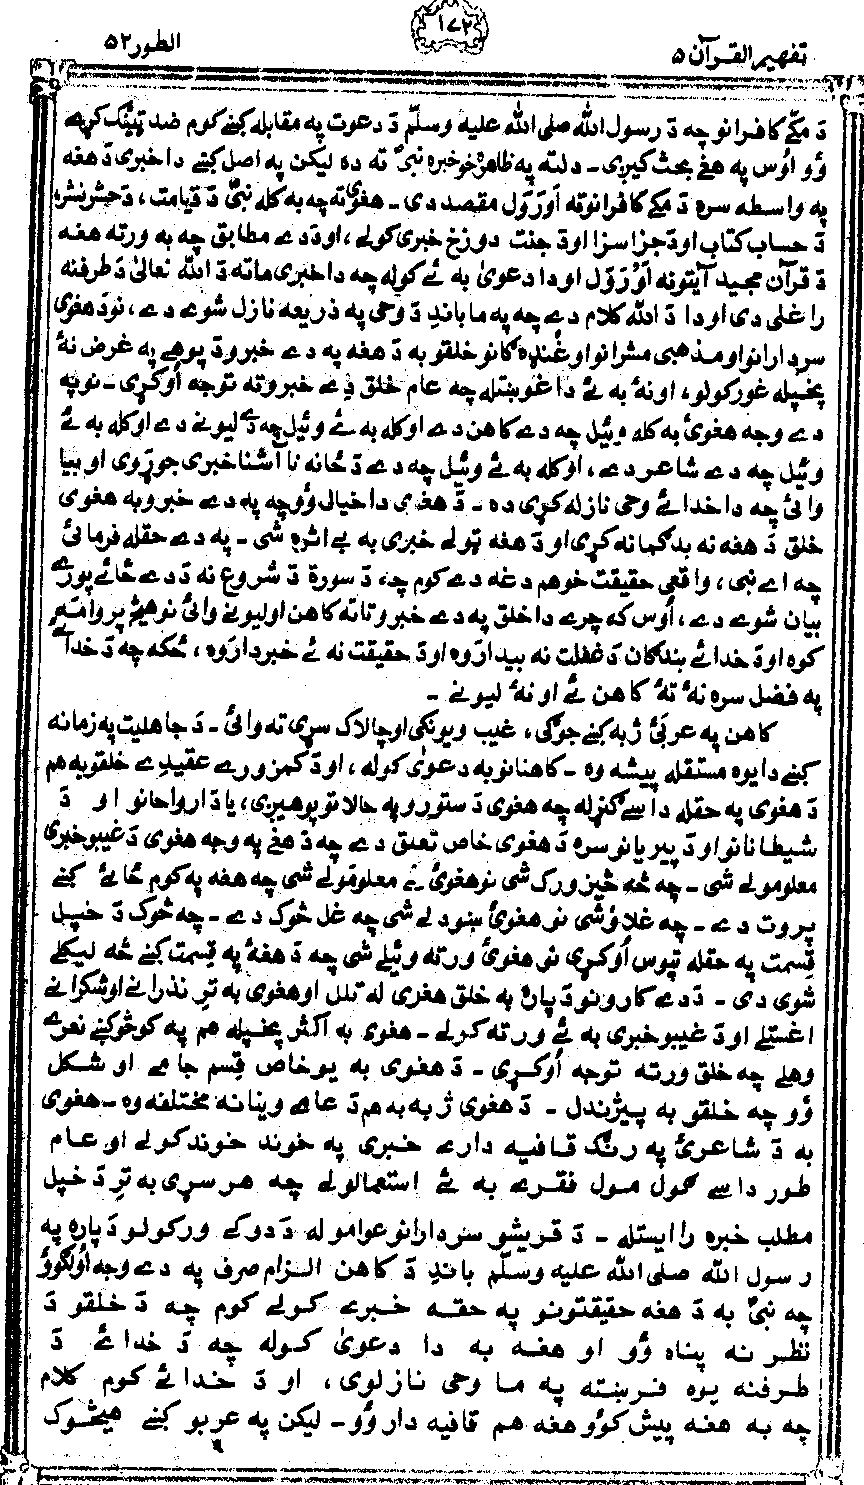 تفهيم القرآن ۵
۱۷۲
الطور ۵۲
دَ مکّے کافرانو چه دَ رسول الله صلی الله علیه وسلّم دَ دعوت په مقابله کښے کوم ضد ټینګ کړے
وُو اوُس په هغے بحث کیږی ـ دلته په ظاهره خو خبره نبیؐ ته ده لیکن په اصل کښے دا خبری دَ هغه
په واسطه سره دَ مکّے کافرانو ته اَورَوَل مقصد دی ـ هغوی ته چه به کله نبیؐ دَ قیامت، دَ حشر نشر
دَ حساب کتاب اودَ جزا سزا اودَ جنت دوزخ خبری کولے، اودَ دے مطابق چه به ورته هغه
دَ قرآن مجید آیتونه اَوُرَوَل اودا دعویٰ به ئے کوله چه دا خبری ماته دَ الله تعالیٰ دَ طرفنه
راغلی دی اودا دَ الله کلام دے چه په ما باندِ دَ وحی په ذریعه نازل شوے دے، نو دَ هغوی
سردارانو او مذهبی مشرانو او غُنډه ګانو خلقو به دَ هغه په دے خبرو دَ پوهے په غرض نهٔ
پخپله غور کولو، اونهٔ به ئے دا غوښتله چه عام خلق دِے خبرو ته توجه اُوکړی ـ نو په
دے وجه هغویٔ به کله وئیل چه دے کاهن دے اوکله به ئے وئیل چه دَے لیونے دے اوکله به ئے
وئیل چه دے شاعر دے، اوکله به ئے وئیل چه دے دَ ځانه نا آشنا خبری جوړوی او بیا
وائی چه دا خدائے وحی نازله کړی ده ـ دَ هغوی دا خیال وُو چه په دے خبرو به هغوی
خلق دَ هغه نه بدګمانه کړی اودَ هغه ټولے خبری به بے اثره شی ـ په دے حقله فرمائی
چه اے نبی، واقعی حقیقت خوهم دغه دے کوم چه، دَ سورة دَ شروع نه دَ دے ځائے پورے
بیان شوے دے، اُوس که چرے دا خلق په دے خبرو تاته کاهن اولیونے وائی نو هیڅ پروا مه
کوه اودَ خدائے بندګان دَ غفلت نه بیداروه اودَ حقیقت نه ئے خبرداروه، ځکه چه دَ خدائے
په فضل سره نهٔ تهٔ کاهن ئے او نهٔ لیونے ـ
کاهن په عربیٔ ژبه کښے جوګی، غیب ویونکی اوچالاک سړی ته وائی ـ دَ جاهلیت په زمانه
کښے دا یوه مستقله پیشه وه ـ کاهنانو به دعویٰ کوله، اودَ کمزورے عقیدے خلقو به هم
دَ هغوی په حقله داسے ګنړله چه هغوی دَ ستورو په حالاتو پوهیږی، یا دَ ارواحانو او دَ
شیطانانو اودَ پیریانو سره دَ هغوی خاص تعلق دے چه دَ هغے په وجه هغوی دَ غیبو خبری
معلومولے شی ـ چه څه څیز ورک شی نو هغویٔ ئے معلومولے شی چه هغه په کوم ځائے کښے
پروت دے ـ چه غلا وُشی نو هغویٔ ښودلے شی چه غل څوک دے ـ چه څوک دَ خپل
قِسمت په حقله تپوس اُوکړی نو هغویٔ ورته وئیلے شی چه دَ هغهٔ په قِسمت کښے څه لیکلے
شوی دی ـ دَ دے کارونو دَ پاره به خلق هغوی له تلل اوهغوی به ترِ نذرانے اوشکرانے
اغستلے اودَ غیبو خبری به ئے ورته کولے ـ هغوی به اکثر پخپله هم په کوڅو کښے نعرے
وهلے چه خلق ورته توجه اُوکړی ـ دَ هغوی به یو خاص قِسم جامے او شکل
وُو چه خلقو به پیژندل ـ دَ هغوی ژبه به هم دَ عامے وینانه مختلفه وه ـ هغوی
به دَ شاعریٔ په رنګ قافیه دارے خبری په خوند خوند کولے او عام
طور داسے ګول مول فقرے به ئے استعمالولے چه هر سړی به ترِ دَ خپل
مطلب خبره را ایستله ـ دَ قریشو سردارانو عوامو له دَ دوکے ورکولو دَ پاره په
رسول الله صلی الله علیه وسلّم باندِ دَ کاهن الزام صرف په دے وجه اُولګوُو
چه نبیؐ به دَ هغه حقیقتونو په حقه خبرے کولے کوم چه دَ خلقو دَ
نظر نه پناه وُو او هغه به دا دعویٰ کوله چه دَ خدائے دَ
طرفنه یوه فرښته په ما وحی نازلوی، او دَ خدائے کوم کلام
چه به هغه پیش کوُو هغه هم قافیه دار وُو ـ لیکن په عربو کښے هیڅوک